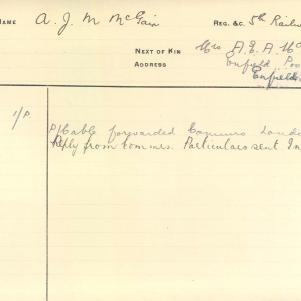 NAME A. J. M McGain REG. &C. 5th Railw
NEXT OF KIN Mrs A. E. A. Mc
ADDRESS Enfield Poo
Enfield
1/P.
P/Cable forwarded Commrs Londo
Reply from Commrs. Particulars sent In